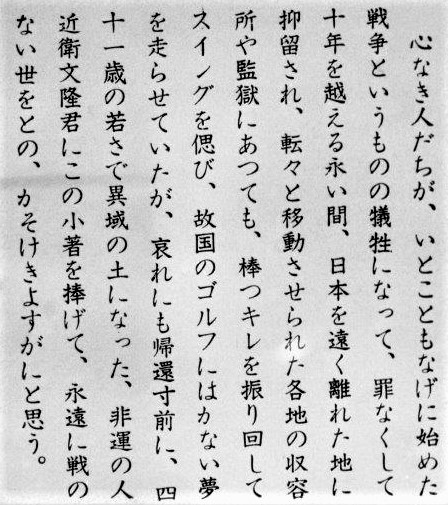 心なき人だちが、いとこともなげに始めた
戦争というものの犠牲になって、罪なくして
十年を越える永い間、日本を遠く離れた地に
抑留され、転々と移動させられた各地の収容
所や監獄にあつても、棒つキレを振り回して
スイングを偲び、故国のゴルフにはかない夢
を走らせていたが、哀れにも帰還寸前に、四
十一歳の若さで異域の土になった、非運の人
近衛文隆君にこの小著を捧げて、永遠に戦の
ない世をとの、かそけきよすがにと思う。